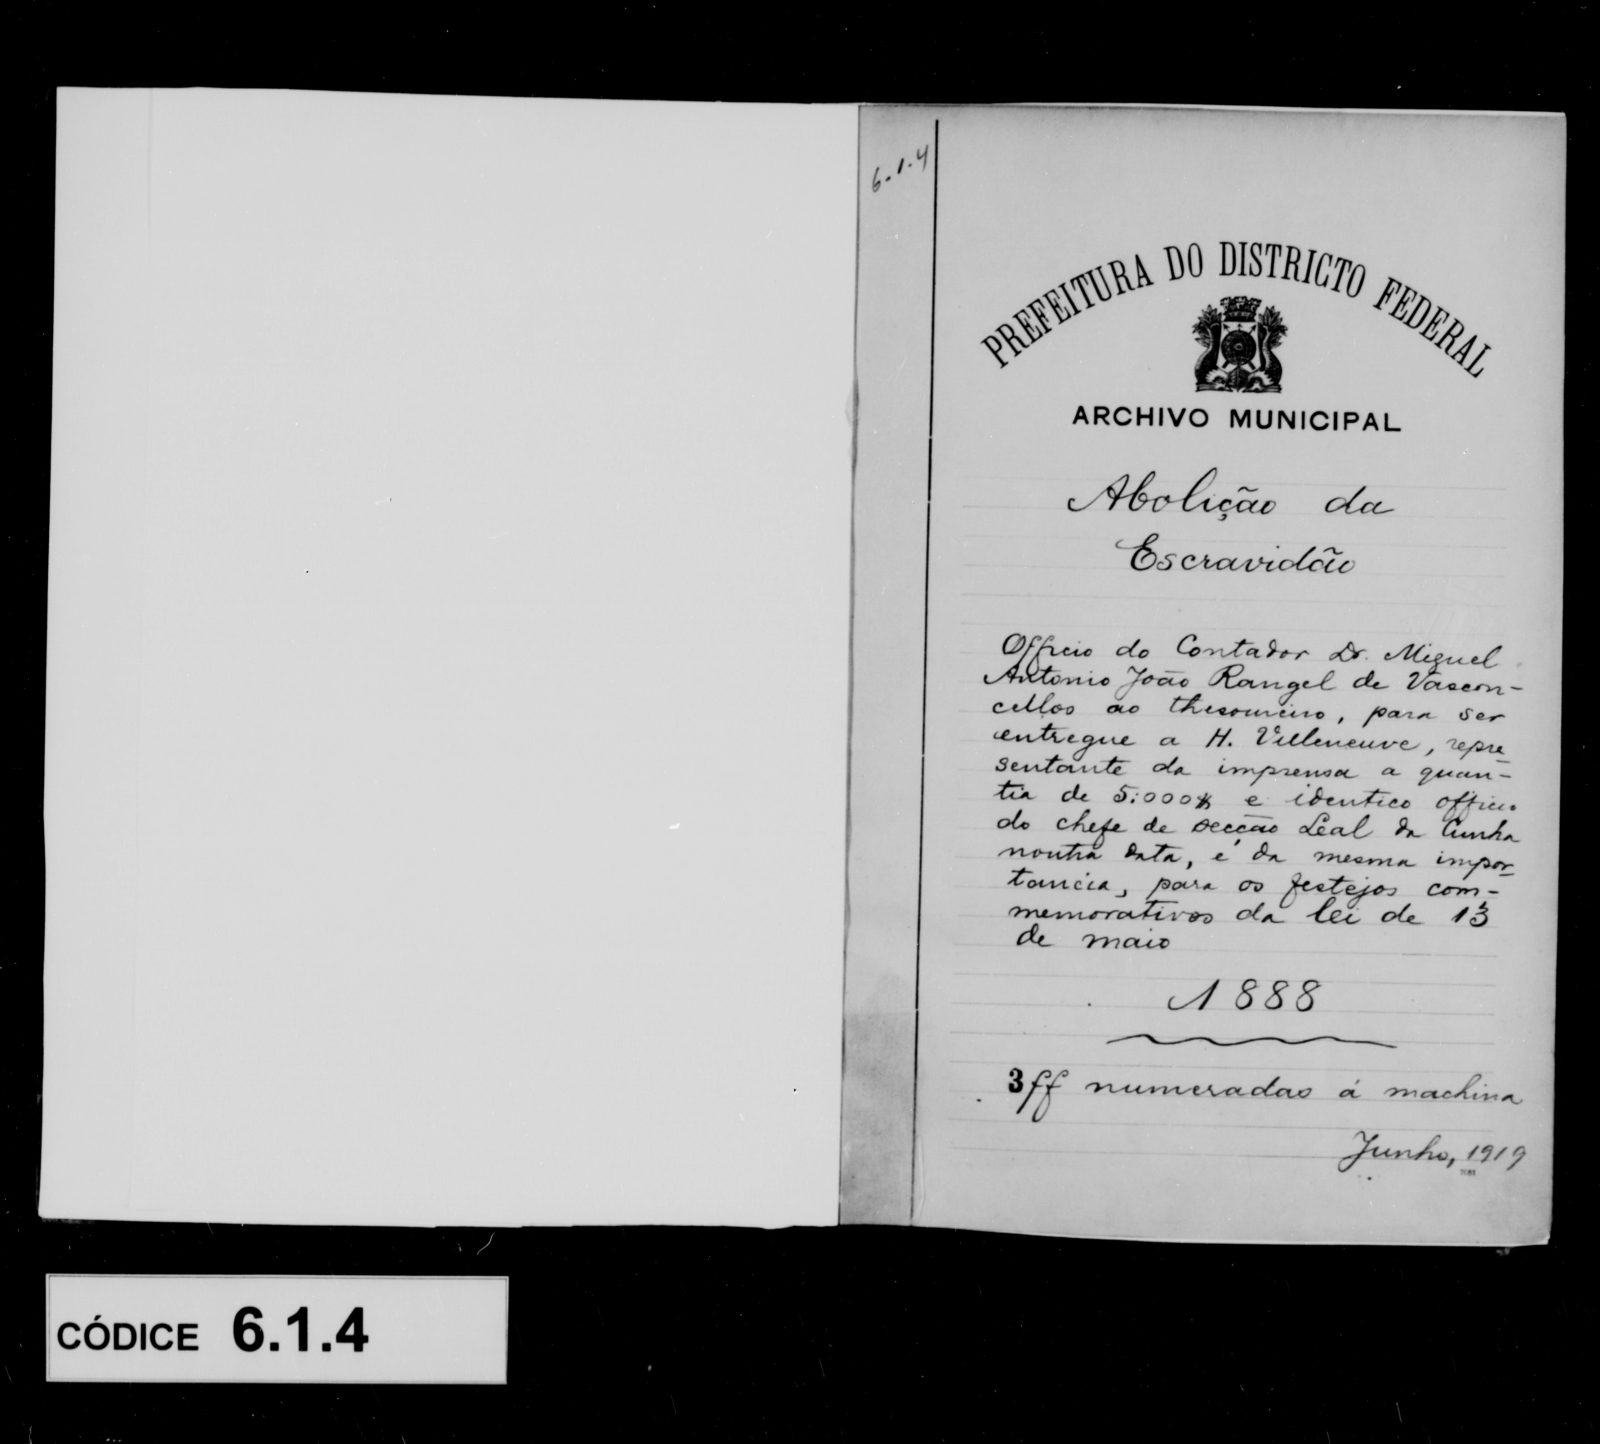 6.1.4
PREFEITURA DO DISTRICTO FEDERAL
ARCHIVO MUNICIPAL
Abolição da
Escravidão
Officio do Contador Dr. Miguel
Antonio João Rangel de Vascon-
cellos ao thesoureiro, para ser
entregue a H. Villeneuve, repre-
sentante da imprensa a quan-
tia de 5:000$ e identico officio
do chefe de secção Leal da Cunha
noutra data, e da mesma impor-
tancia, para os festejos com-
memorativos da lei de 13
de maio
1888
3 ff numeradas á machina
Junho, 1919
CÓDICE 6.1.4